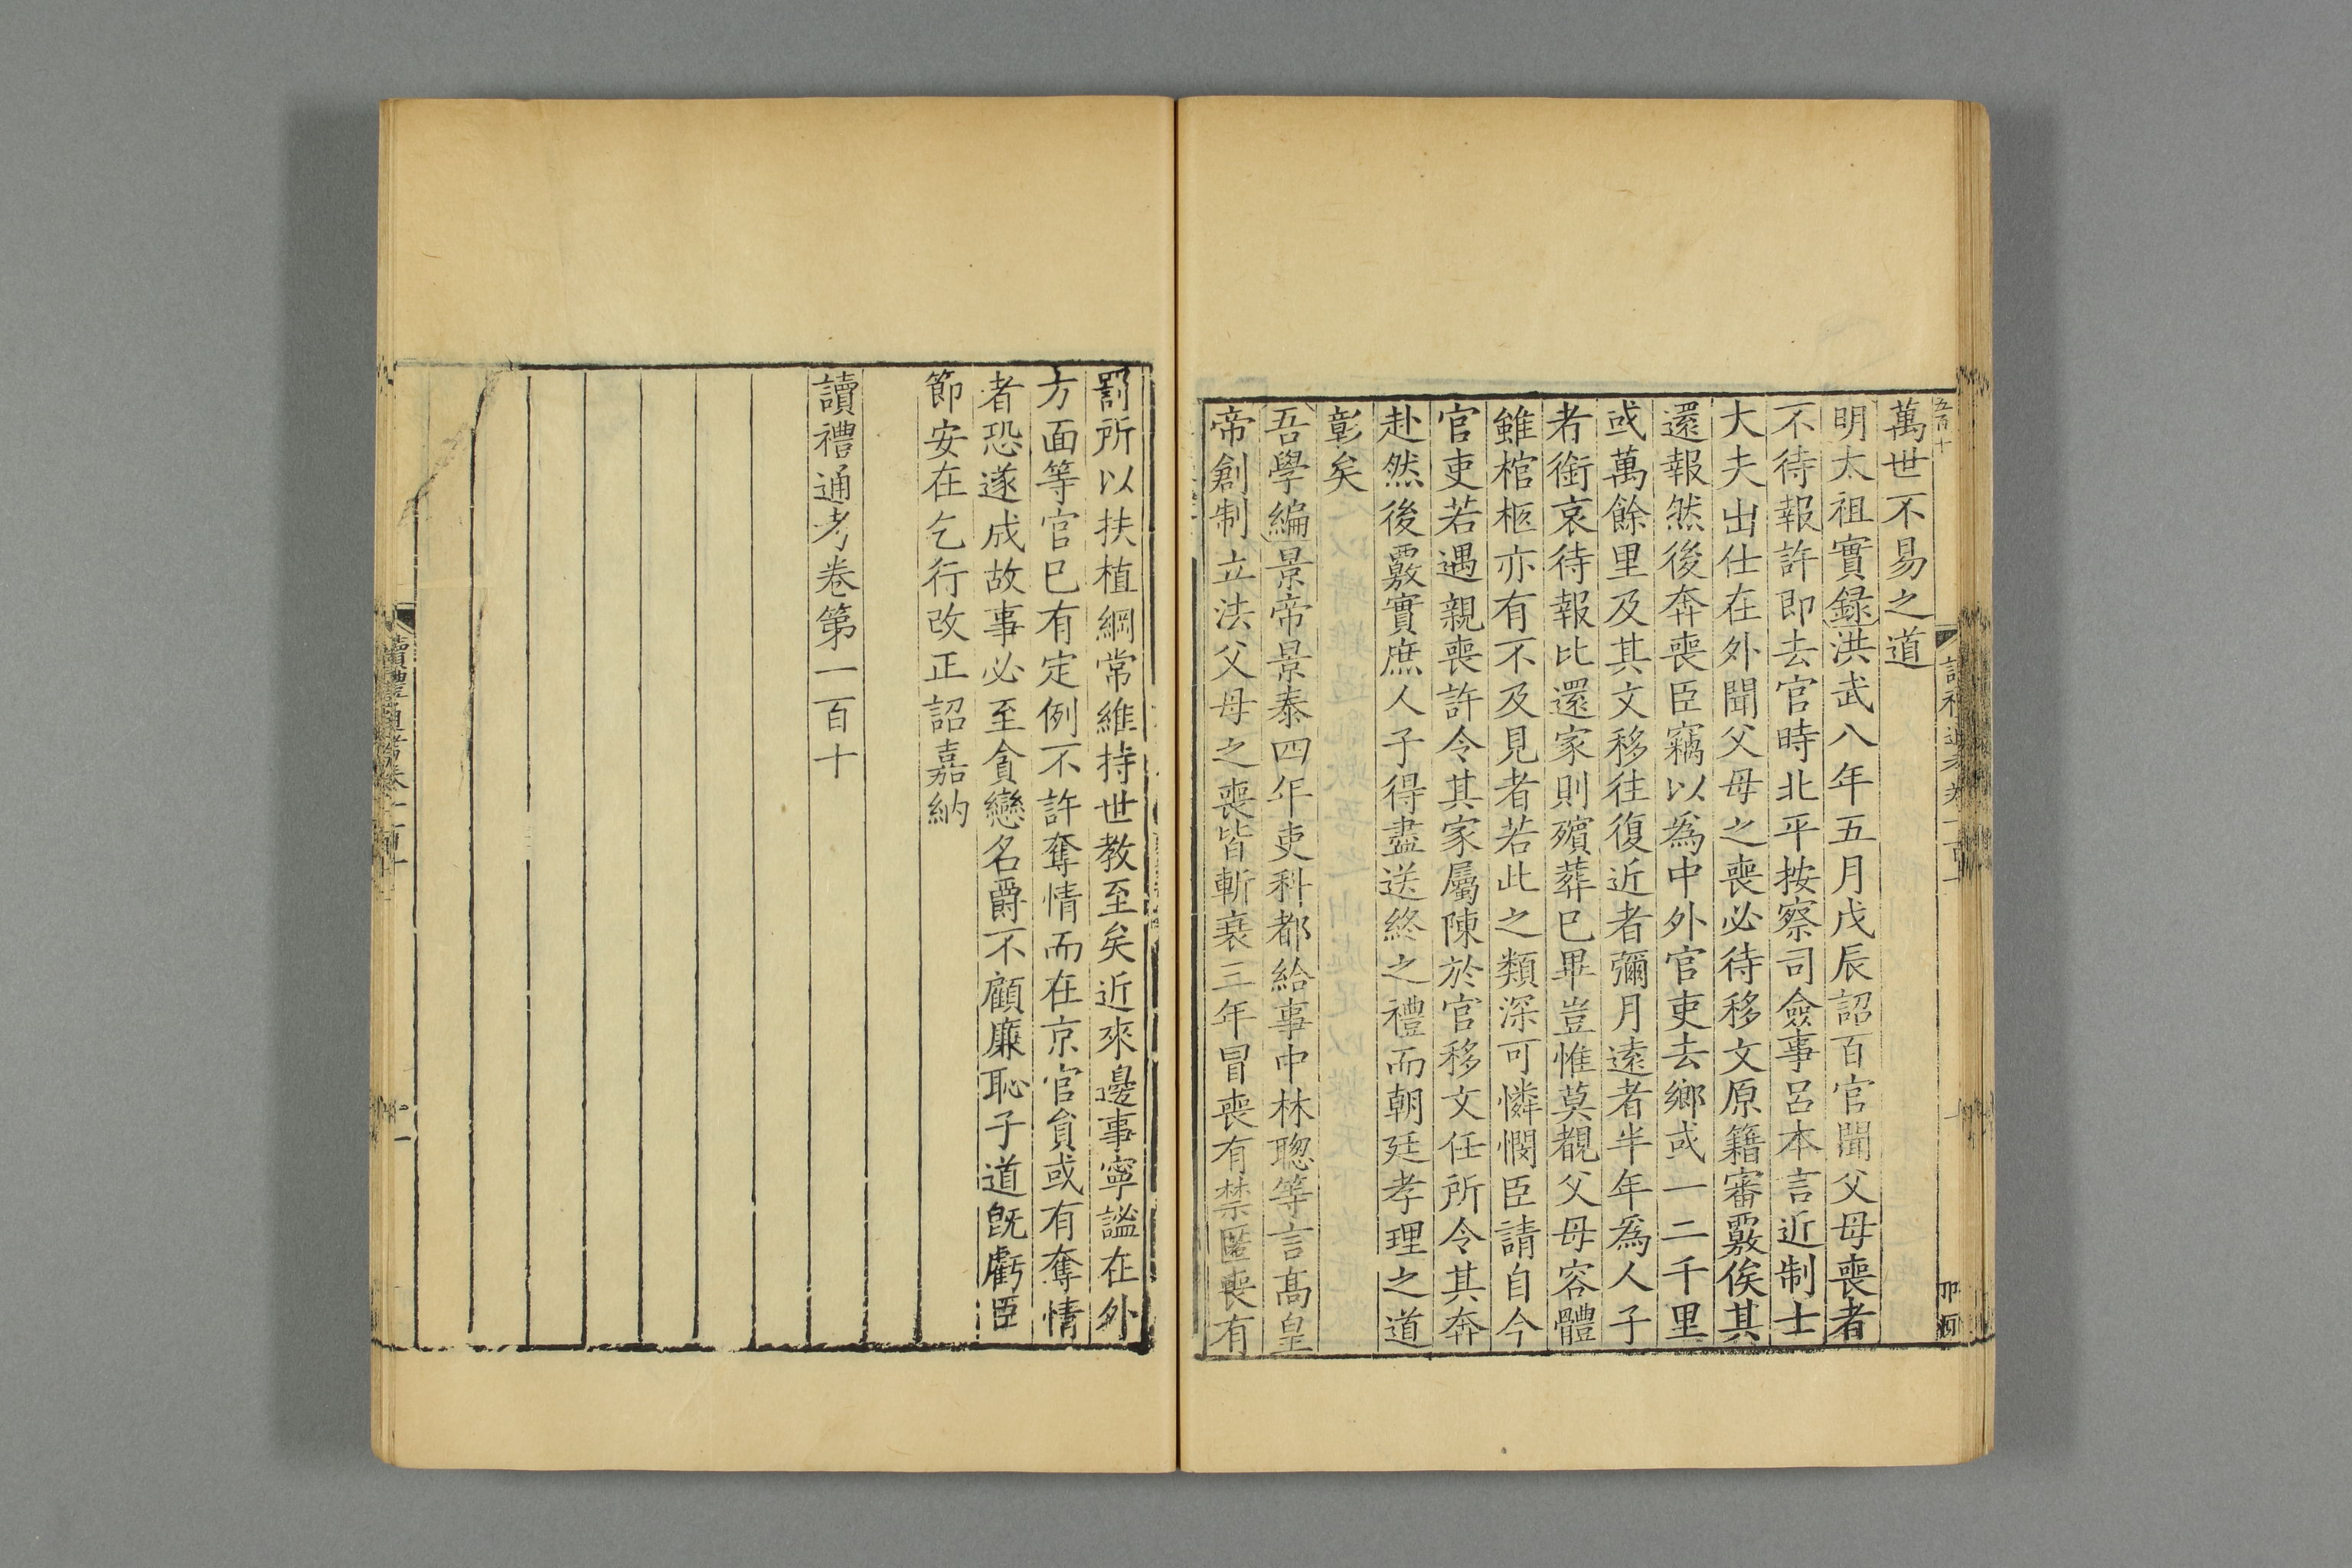 萬世不易之道
明太祖實錄洪武八年五月戊辰詔百官聞父母喪者
不待報許即去官時北平按察司僉事呂本言近制士
大夫出仕在外聞父母之喪必待移文原籍審覈俟其
還報然後奔喪臣竊以爲中外官吏去鄉或一二千里
或萬餘里及其文移往復近者彌月遠者半年爲人子
者銜哀待報比還家則殯葬巳畢豈惟莫覩父母容體
雖棺柩亦有不及見者若此之類深可憐憫臣請自今
官吏若遇親喪許令其家屬陳於官移文任所令其奔
赴然後覈實庶人子得盡送終之禮而朝廷孝理之道
彰矣
吾學編景帝景泰四年吏科都給事中林聰等言髙皇
帝創制立法父母之喪皆斬衰三年冒喪有禁匿喪有
罰所以扶植綱常維持世教至矣近來邊事寧謐在外
方面等官巳有定例不許奪情而在京官貟或有奪情
者恐遂成故事必至貪戀名爵不顧廉恥子道旣虧臣
節安在乞行改正詔嘉納
讀禮通考卷第一百十
讀禮通考卷一百十